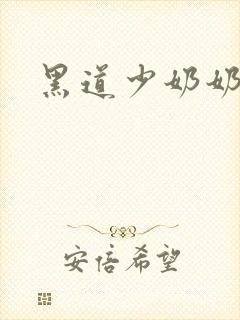 黑道少奶奶
安倍希望